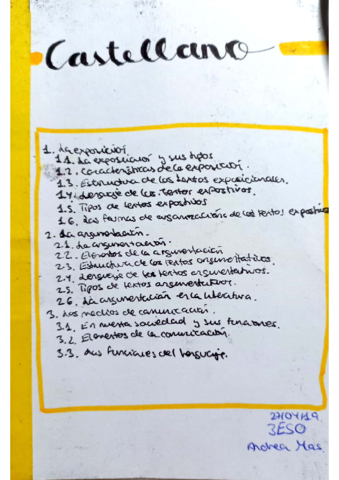 Castellano
1. La exposición
1.1. La exposición y sus tipos
1.2. Características de la exposición.
1.3. Estructura de los textos exposicionales.
1.4. Lenguaje de los textos expositivos.
1.5. Tipos de textos expositivos
1.6. Las formas de organización de los textos expositivos
2. La argumentación.
2.1. La argumentación.
2.2. Elementos de la argumentación
2.3. Estructura de los textos argumentativos.
2.4. Lenguaje de los textos argumentativos.
2.5. Tipos de textos argumentativos.
2.6. La argumentación en la literatura.
3. Los medios de comunicación.
3.1. En nuestra sociedad y sus funciones.
3.2. Elementos de la comunicación.
3.3. Las funciones del lenguaje.
27/04/19
3ESO
Andrea Mas.